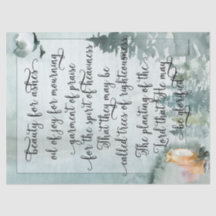 Beauty for ashes
oil of joy for mourning
garment of praise
for the spirit of heaviness
That they may be
called trees of righteousness
The planting of the
Lord that He may
be glorified